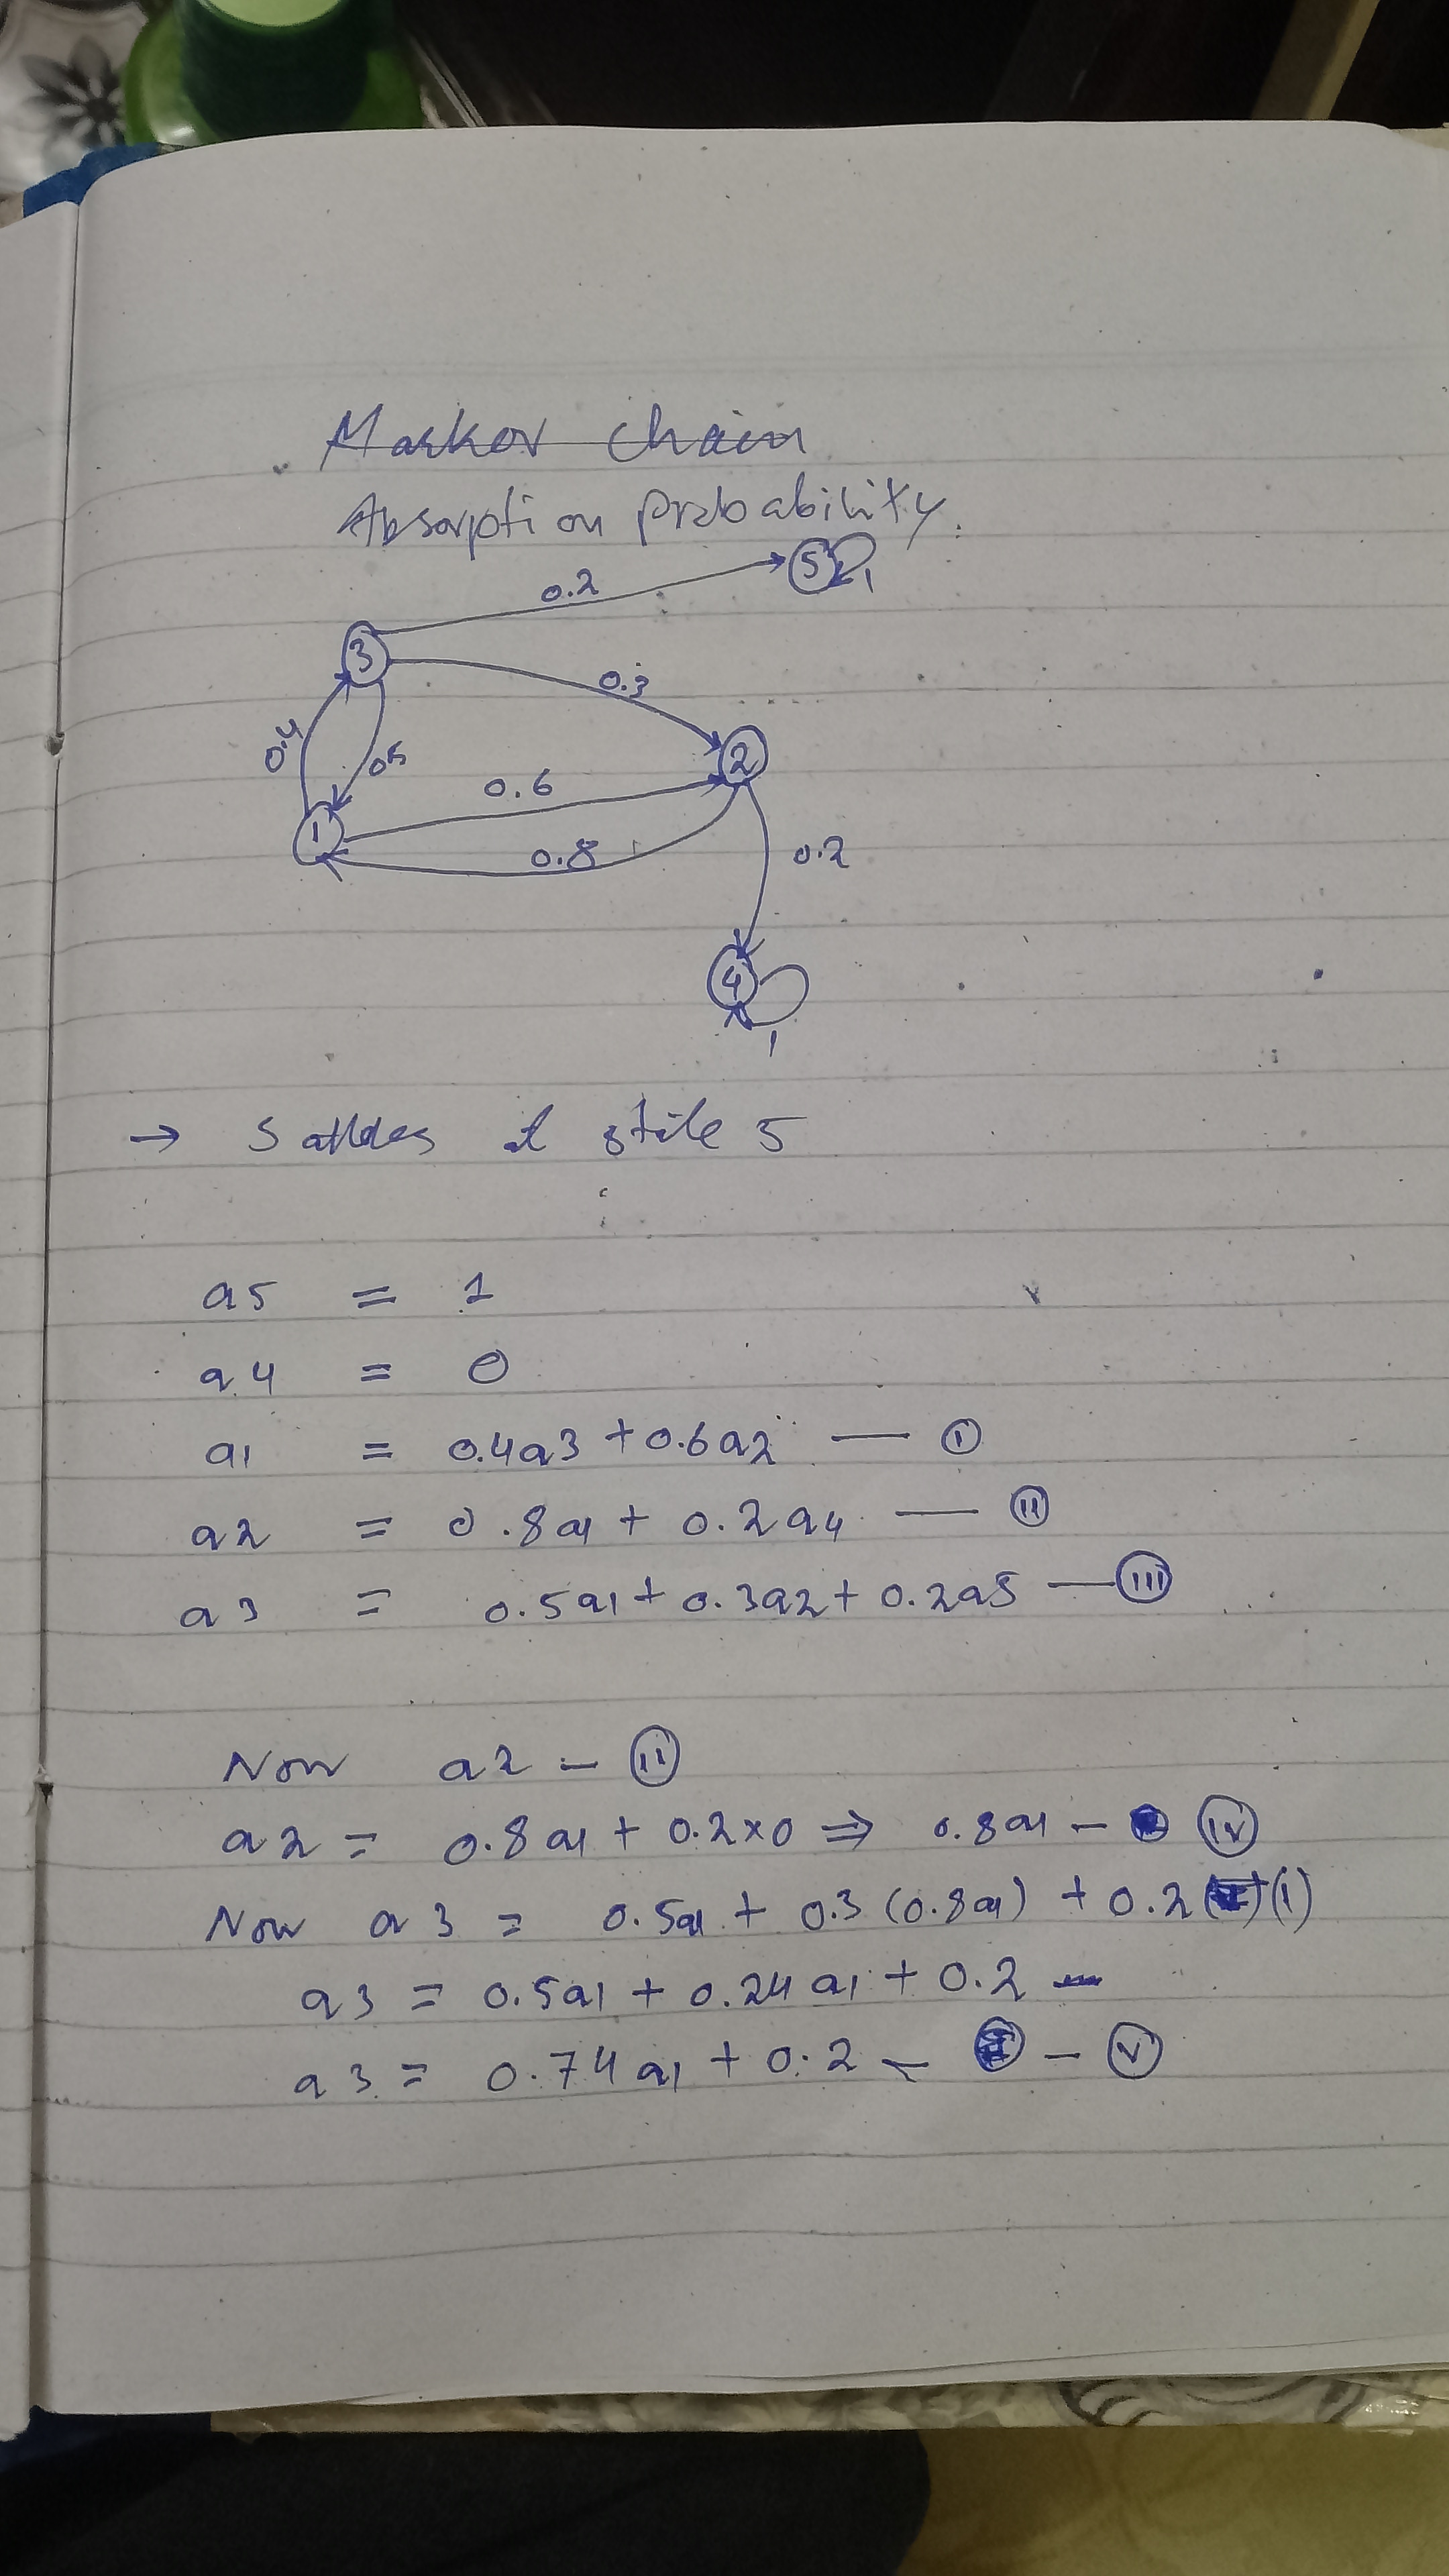 Markov Chain
Absorption probability.
0.2
5
1
3
0.3
0.4
0.5
2
0.6
1
0.8
0.2
4
1
→ Settles at state 5
a5 = 1
a4 = 0
a1 = 0.4a3 + 0.6a2 — (i)
a2 = 0.8a1 + 0.2a4 — (ii)
a3 = 0.5a1 + 0.3a2 + 0.2a5 — (iii)
Now a2 - (ii)
a2 = 0.8a1 + 0.2×0 ⇒ 0.8a1 - (iv)
Now a3 = 0.5a1 + 0.3(0.8a1) + 0.2(1)
a3 = 0.5a1 + 0.24a1 + 0.2
a3 = 0.74a1 + 0.2 - - (v)